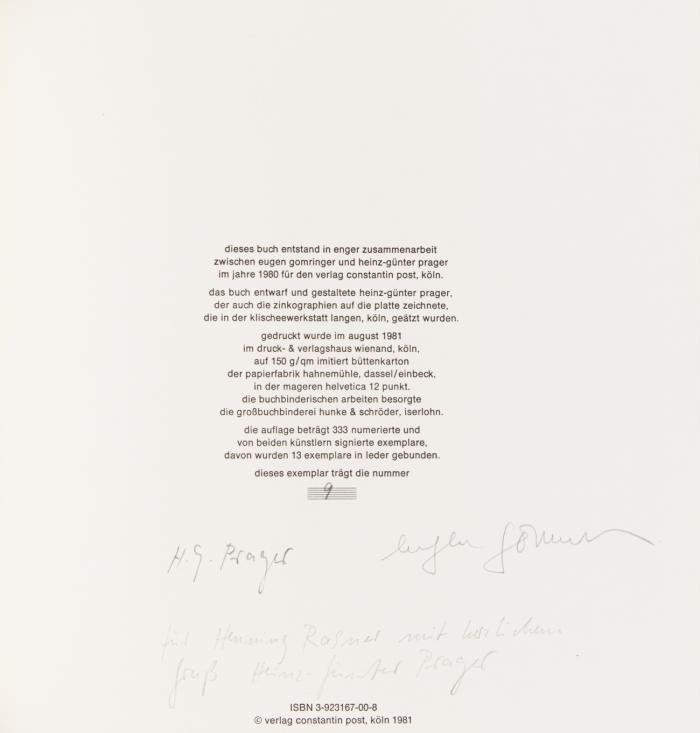 dieses buch entstand in enger zusammenarbeit
zwischen eugen gomringer und heinz-günter prager
im jahre 1980 für den verlag constantin post, köln.
das buch entwarf und gestaltete heinz-günter prager,
der auch die zinkographien auf die platte zeichnete,
die in der klischeewerkstatt langen, köln, geätzt wurden.
gedruckt wurde im august 1981
im druck- & verlagshaus wienand, köln,
auf 150 g/qm imitiert büttenkarton
der papierfabrik hahnemühle, dassel/einbeck,
in der mageren helvetica 12 punkt.
die buchbinderischen arbeiten besorgte
die großbuchbinderei hunke & schröder, iserlohn.
die auflage beträgt 333 numerierte und
von beiden künstlern signierte exemplare,
davon wurden 13 exemplare in leder gebunden.
dieses exemplar trägt die nummer
9
H.G. Prager
für Henning mit herzlichem
Gruß Heinz-Günter Prager
ISBN 3-923167-00-8
© verlag constantin post, köln 1981